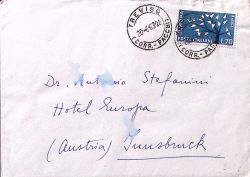 TREVISO
(CORR.-PACCHI)
POSTE ITALIANE
L.70
Dr. Antonio Stefanini
Hotel Europa
(Austria) Innsbruck